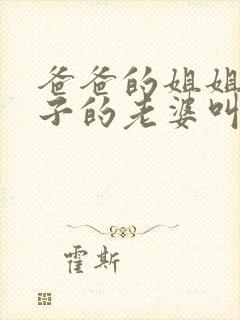 爸爸的姐姐
子的老婆叫
霍斯